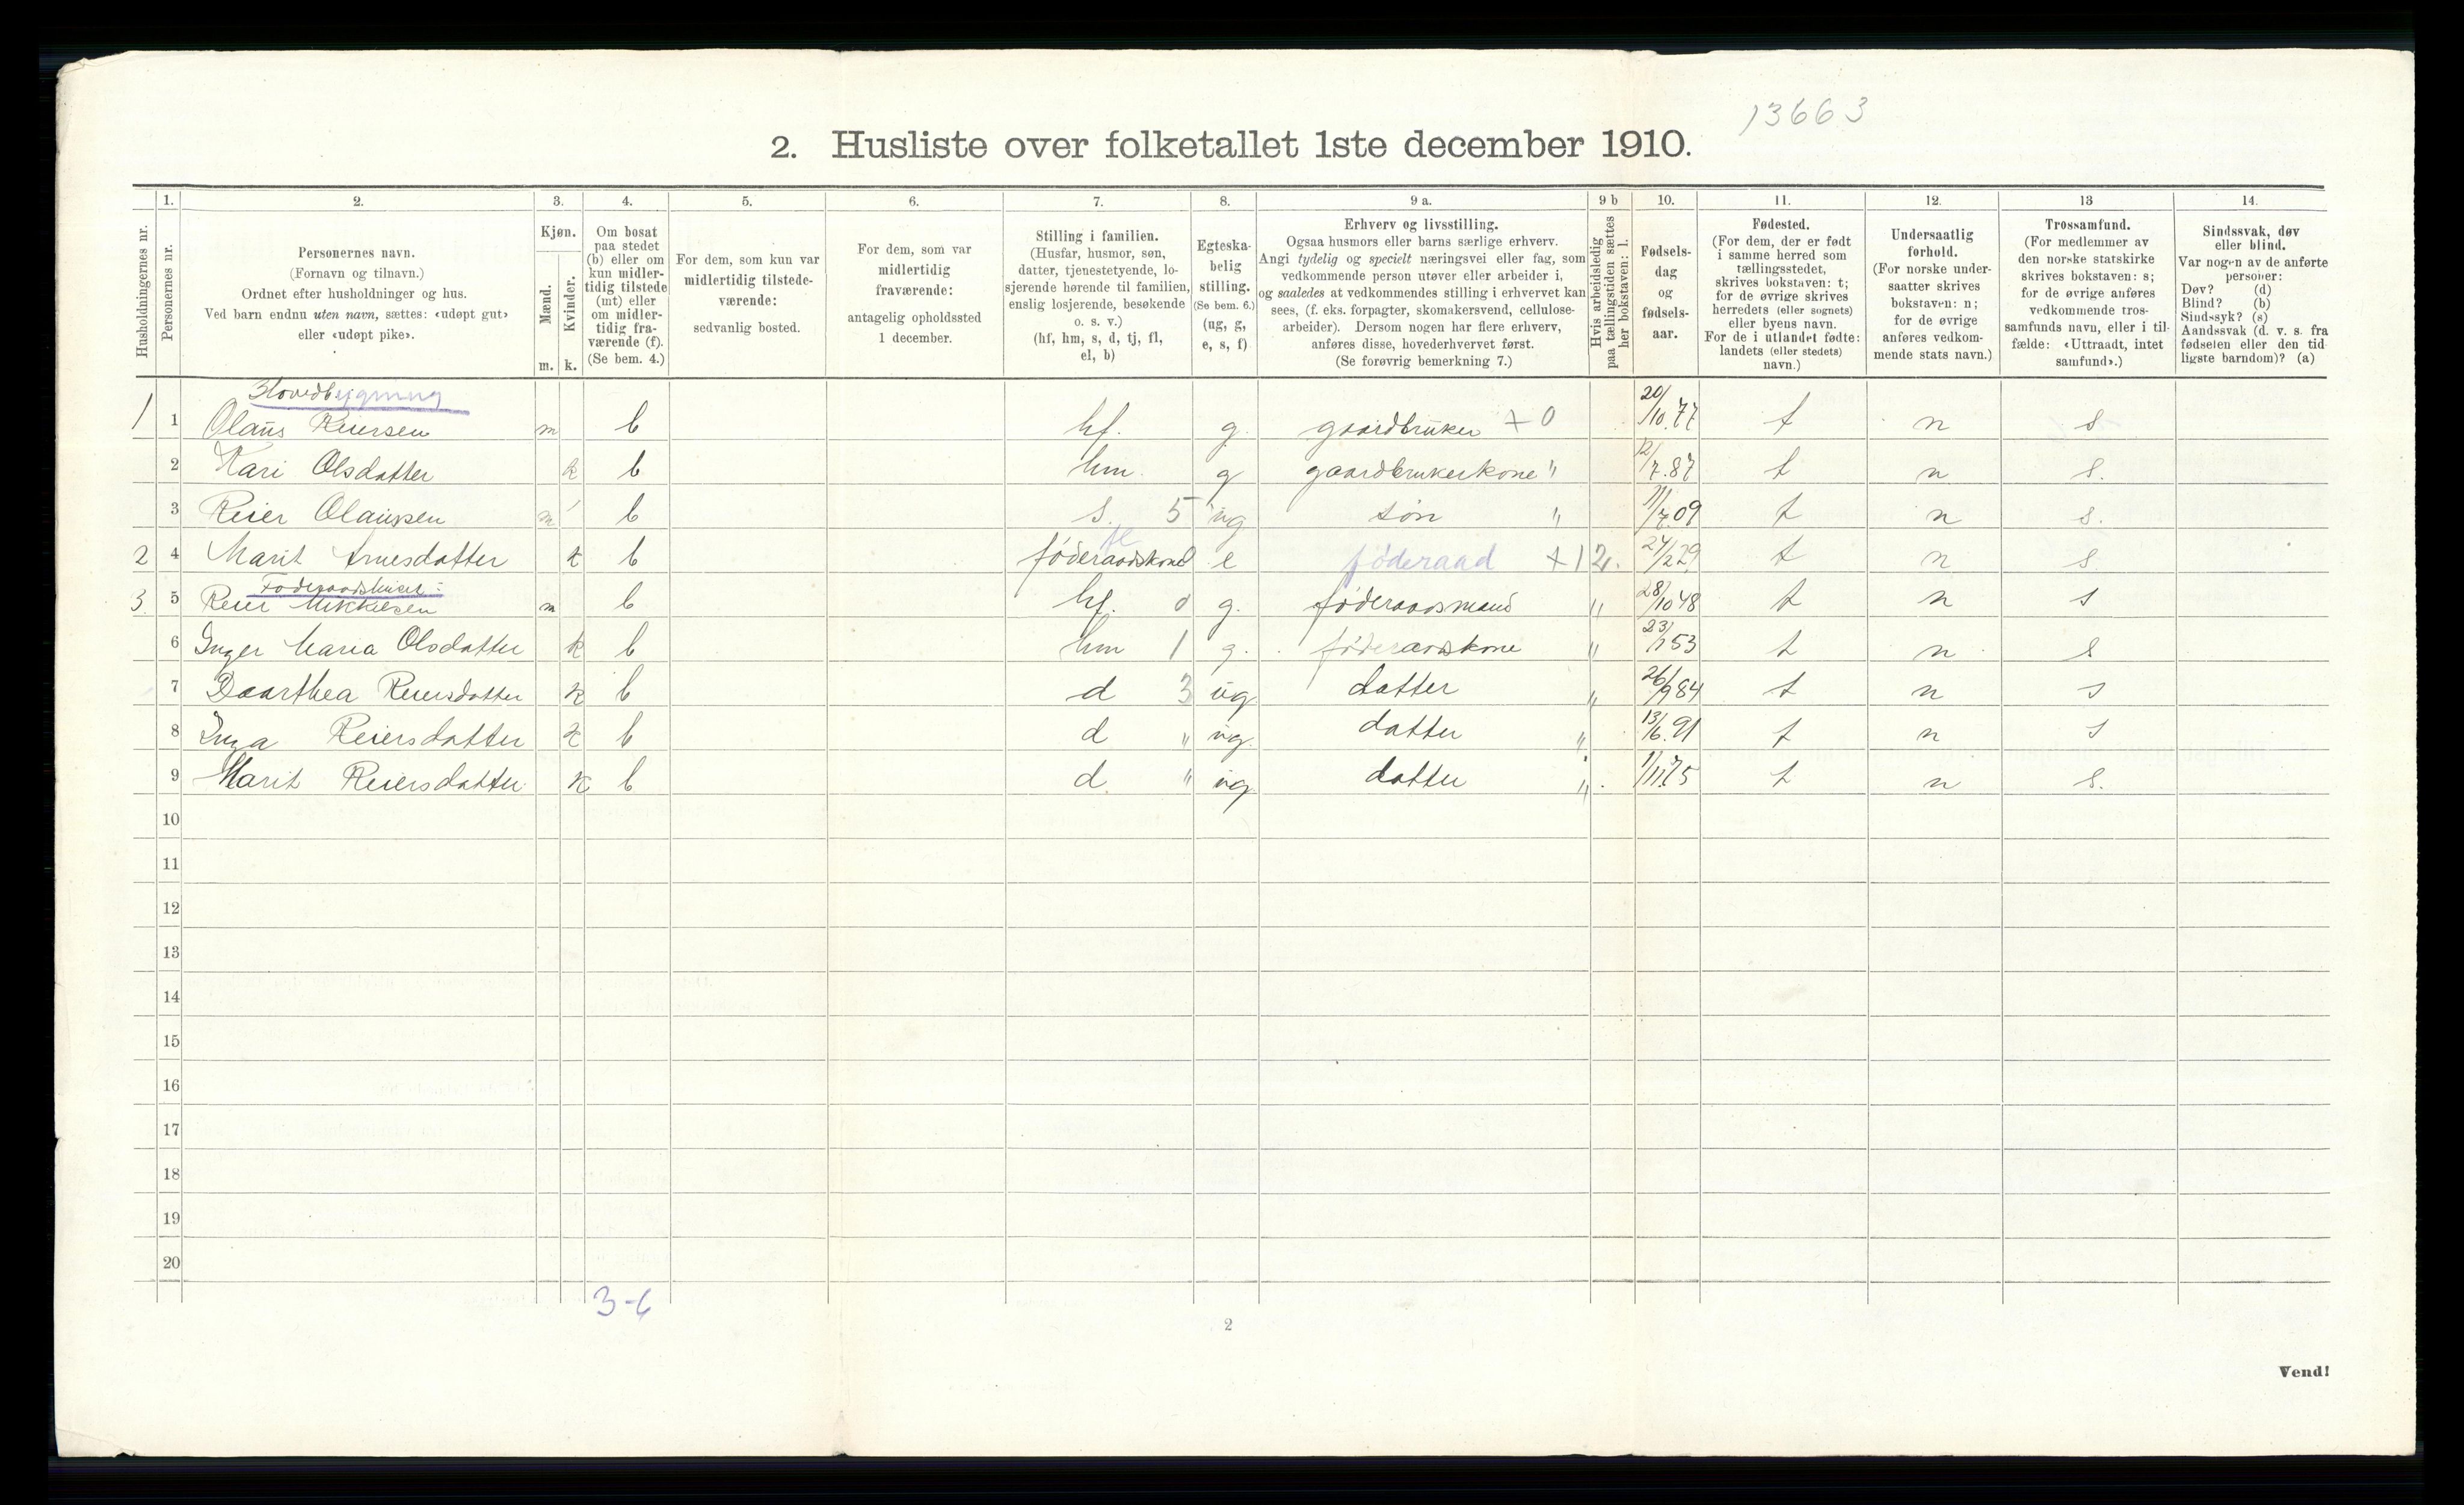 13663
2. Husliste over folketallet 1ste december 1910.
Husholdningernes nr.
1.
Personernes nr.
2.
Personernes navn.
(Fornavn og tilnavn.)
Ordnet efter husholdninger og hus.
Ved barn endnu uten navn, sættes: «udøpt gut»
eller «udøpt pike».
3.
Kjøn.
Mænd.
Kvinder.
m. k.
4.
Om bosat
paa stedet
(b) eller om
kun midler-
tidig tilstede
(mt) eller
om midler-
tidig fra-
værende (f).
(Se bem. 4.)
5.
For dem, som kun var
midlertidig tilstede-
værende:
sedvanlig bosted.
6.
For dem, som var
midlertidig
fraværende:
antagelig opholdssted
1 december.
7.
Stilling i familien.
(Husfar, husmor, søn,
datter, tjenestetyende, lo-
sjerende hørende til familien,
enslig losjerende, besøkende
o. s. v.)
(hf, hm, s, d, tj, fl,
el, b)
8.
Egteska-
belig
stilling.
(Se bem. 6.)
(ug, g,
e, s, f)
9 a.
Erhverv og livsstilling.
Ogsaa husmors eller barns særlige erhverv.
Angi tydelig og specielt næringsvei eller fag, som
vedkommende person utøver eller arbeider i,
og saaledes at vedkommendes stilling i erhvervet kan
sees, (f. eks. forpagter, skomakersvend, cellulose-
arbeider). Dersom nogen har flere erhverv,
anføres disse, hovederhvervet først.
(Se forøvrig bemerkning 7.)
9 b
Hvis arbeidsledig
paa tællingstiden sættes
her bokstaven: l.
10.
Fødsels-
dag
og
fødsels-
aar.
11.
Fødested.
(For dem, der er født
i samme herred som
tællingsstedet,
skrives bokstaven: t;
for de øvrige skrives
herredets (eller sognets)
eller byens navn.
For de i utlandet fødte:
landets (eller stedets)
navn.)
12.
Undersaatlig
forhold.
(For norske under-
saatter skrives
bokstaven: n;
for de øvrige
anføres vedkom-
mende stats navn.)
13
Trossamfund.
(For medlemmer av
den norske statskirke
skrives bokstaven: s;
for de øvrige anføres
vedkommende tros-
samfunds navn, eller i til-
fælde: «Uttraadt, intet
samfund».)
14.
Sindssvak, døv
eller blind.
Var nogen av de anførte
personer:
Døv? (d)
Blind? (b)
Sindssyk? (s)
Aandssvak (d. v. s. fra
fødselen eller den tid-
ligste barndom)? (a)
Hovedbygning
1 1 Olaus Reiersen m b hf. g. gaardbruker + 0 20/10.77 t n s
2 Kari Olsdatter k b hm. g gaardbrukerkone " 12/7.87 t n s.
3 Reier Olaussen m b s. 5 ug søn " 11/7.09 t n s.
fl
2 4 Marit Arnesdatter k b føderaadskone e føderaad + 12. 24/2 29 t n s.
Føderaadshuset:
3. 5 Reier Mikkelsen m b hf. 0 g. føderaadsmand " 28/10 48 t n s
6 Inger Maria Olsdatter k b hm 1 g. føderaadskone " 23/1 53 t n s
7 Daarthea Reiersdatter k b d 3 ug datter " 26/9 84 t n s
8 Inga Reiersdatter k b d " ug. datter " 13/6.91 t n s
9 Marit Reiersdatter k b d. " ug datter " 1/11.75 t n s.
10
11
12
13
14
15
16
17
18
19
20
3-6
2
Vend!